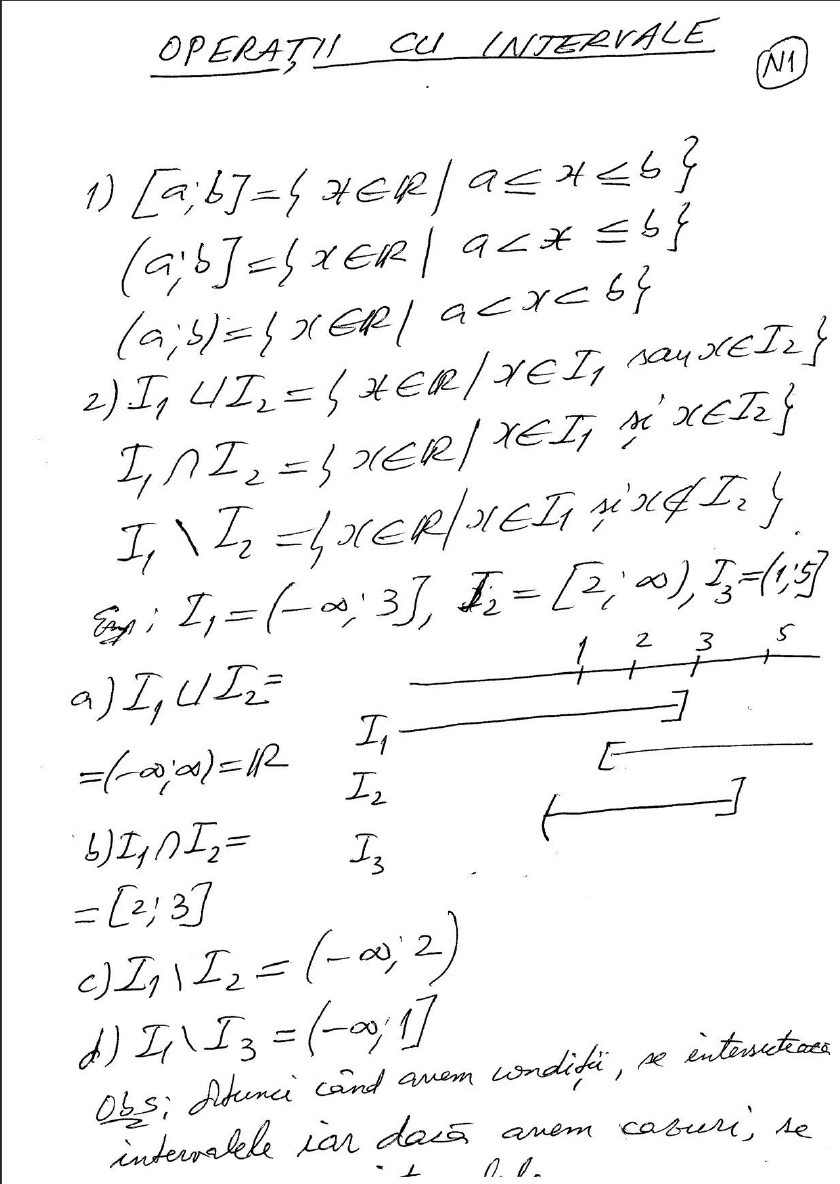 OPERAȚII CU INTERVALE
N1
1) [a;b]={x∈ℝ| a≤x≤b}
(a;b]={x∈ℝ| a<x≤b}
(a;b)={x∈ℝ| a<x<b}
2) I₁∪I₂={x∈ℝ|x∈I₁ sau x∈I₂}
I₁∩I₂={x∈ℝ|x∈I₁ și x∈I₂}
I₁\I₂={x∈ℝ|x∈I₁ și x∉I₂}
Exp: I₁=(-∞;3], I₂=[2;∞), I₃=(1;5]
1 2 3 5
a) I₁∪I₂=
I₁
=(-∞;∞)=ℝ
I₂
b) I₁∩I₂=
I₃
=[2;3]
c) I₁\I₂=(-∞;2)
d) I₁\I₃=(-∞;1]
Obs: Atunci când avem condiții, se intersectează
intervalele iar dacă avem cazuri, se